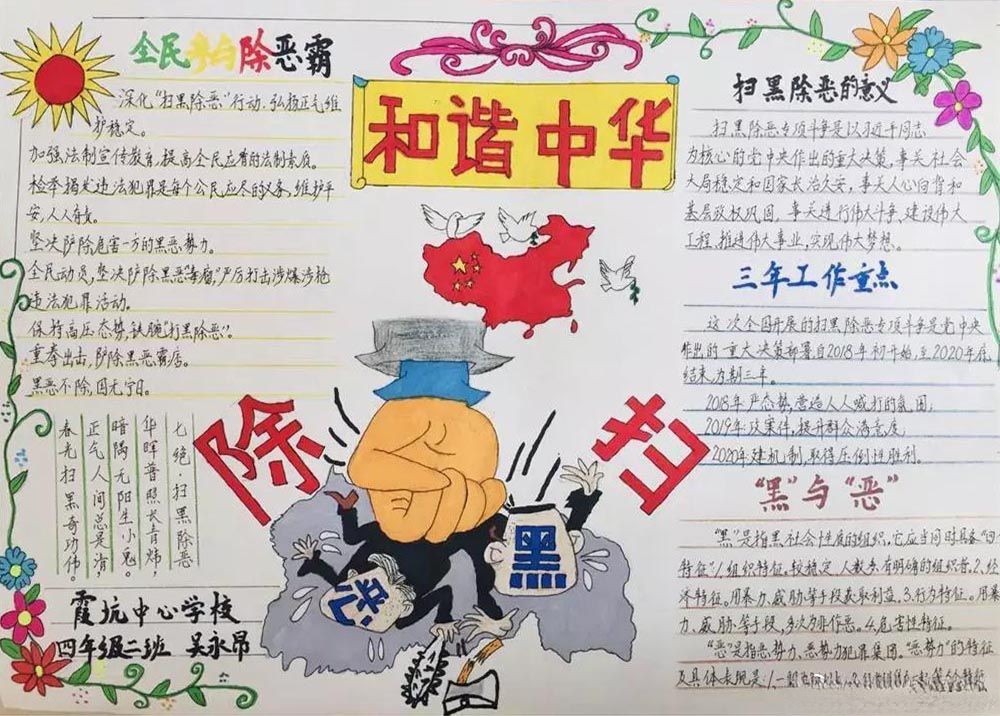 全民参与除恶霸
深化“扫黑除恶”行动、弘扬正气维
护稳定。
加强法制宣传教育，提高全民应有的法制素质。
检举揭发违法犯罪是每个公民应尽的义务，维护平
安，人人有责。
坚决铲除危害一方的黑恶势力。
全民动员，坚决铲除黑恶“毒瘤”严厉打击涉爆涉枪
违法犯罪活动。
保持高压态势，铁腕“打黑除恶”。
重拳出击，铲除黑恶霸痞。
黑恶不除，国无宁日。
七绝·扫黑除恶
华晖普照长青炜，
暗隅无阳生小鬼。
正气人间总是清，
春光扫黑奇功伟。
霞坑中心学校
四年级二班 吴永昂
和谐中华
除
扫
恶
黑
扫黑除恶的意义
扫黑除恶专项斗争是以习近平同志
为核心的党中央作出的重大决策，事关社会
大局稳定和国家长治久安，事关人心向背和
基层政权巩固，事关进行伟大斗争，建设伟大
工程，推进伟大事业，实现伟大梦想。
三年工作重点
这次全国开展的扫黑除恶专项斗争是党中央
作出的重大决策部署自2018年初开始，至2020年底
结束，为期三年。
2018年 严态势，营造人人喊打的氛围；
2019年攻案件，提升群众满意度
2020年建机制，取得压倒性胜利。
“黑”与“恶”
“黑”是指黑社会性质的组织，它应当同时具备“四个
特征”1.组织特征。较稳定，人数多，有明确的组织者。2、经
济特征。用暴力、威胁等手段获取利益。3.行为特征。用暴
力、威胁等手段，多次为非作恶。4.危害性特征。
“恶”是指恶势力、恶势力犯罪集团。“恶势力”的特征
及具体表现是：1.一般